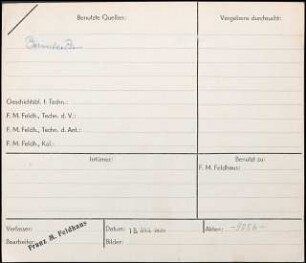 Benutzte Quellen:
Vergebens durchsucht:
Geschichtsbl. f. Techn.:
F. M. Feldh., Techn. d. V.:
F. M. Feldh., Techn. d. Ant.:
F. M. Feldh., Kal.:
Irrtümer:
Benutzt zu:
F. M. Feldhaus:
Verfasser:
Datum:
Akten:
Bearbeiter:
Franz M. Feldhaus
Bilder: